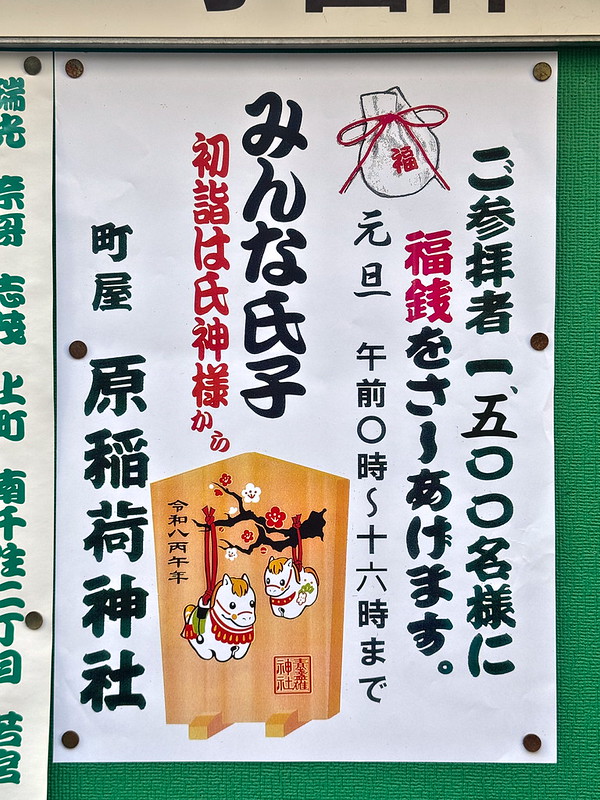 ご参拝者一、五〇〇名様に
福銭をさしあげます。
福
元旦 午前〇時〜十六時まで
みんな氏子
初詣は氏神様から
令和八丙午年
神社
町屋 原稲荷神社
瑞光 志茂 上町 南千住二丁目 若宮